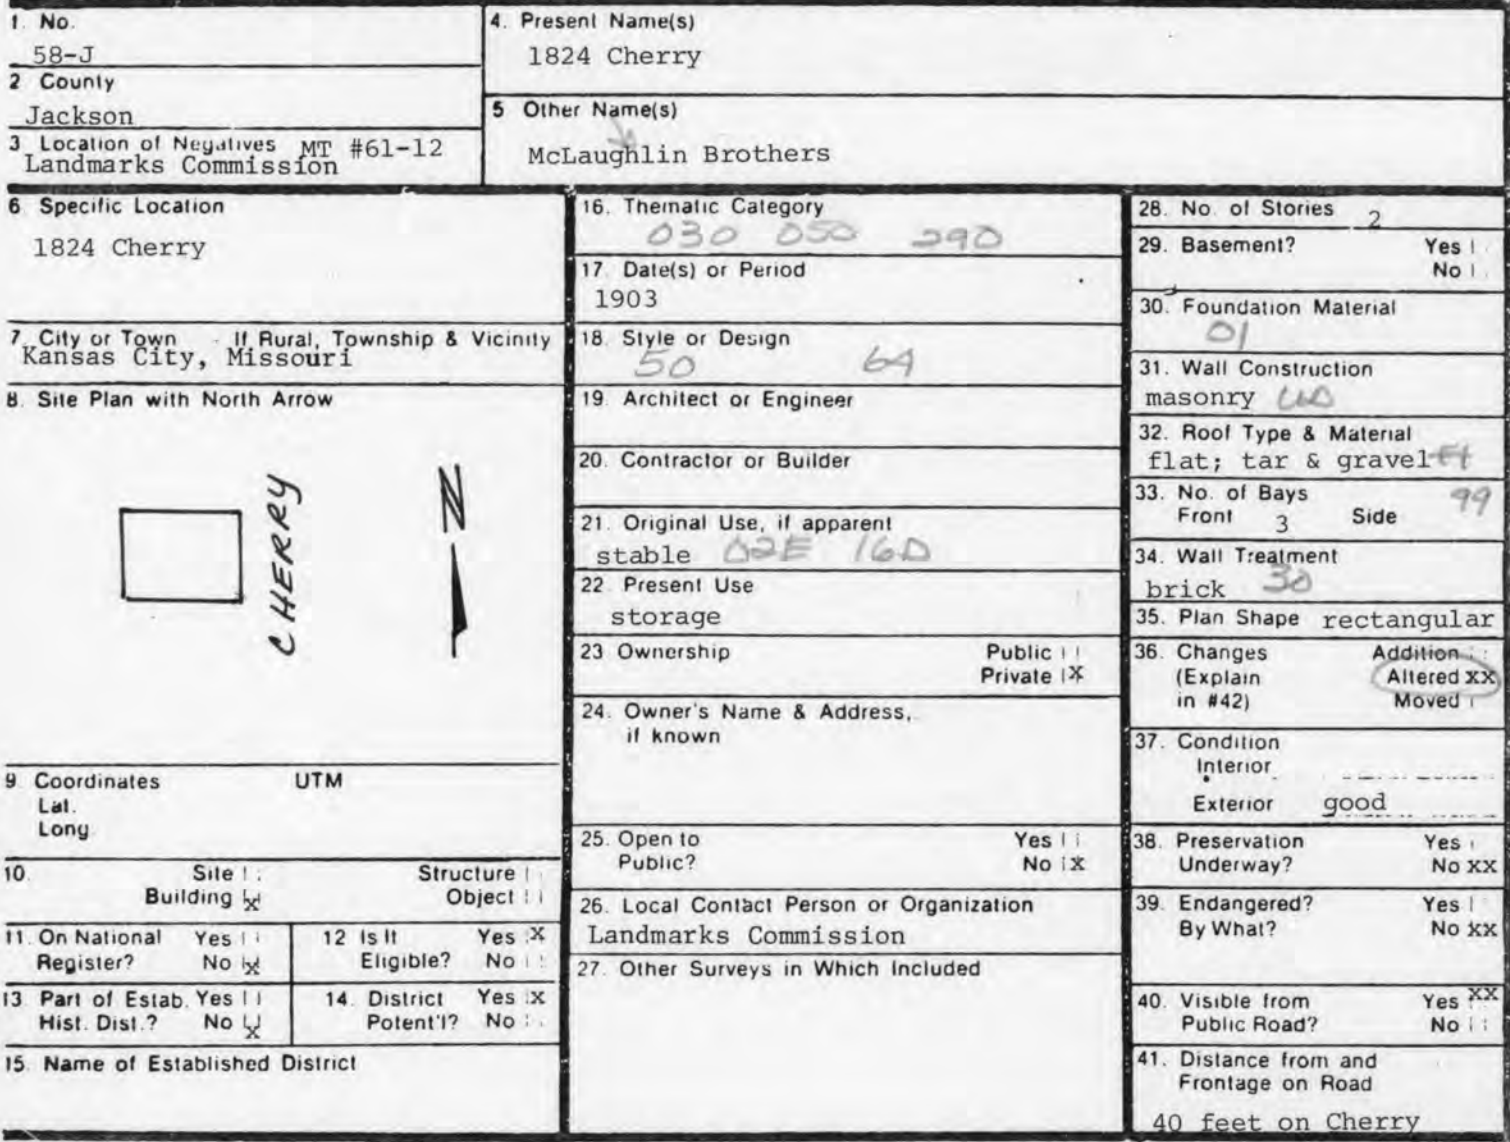 1. No.
58-J
2 County
Jackson
3 Location of Negatives MT #61-12
Landmarks Commission
4. Present Name(s)
1824 Cherry
5 Other Name(s)
McLaughlin Brothers
6 Specific Location
1824 Cherry
7 City or Town If Rural, Township & Vicinity
Kansas City, Missouri
8. Site Plan with North Arrow
CHERRY
N
9 Coordinates UTM
Lat.
Long
10. Site
Structure
Building X
Object
11. On National Register? Yes
No X
12 Is It Eligible? Yes X
No
13 Part of Estab. Hist. Dist.? Yes
No X
14. District Potent'l? Yes X
No
15. Name of Established District
16. Thematic Category
030 050 290
17. Date(s) or Period
1903
18. Style or Design
50 64
19. Architect or Engineer
20. Contractor or Builder
21. Original Use, if apparent
stable 02E 16D
22. Present Use
storage
23 Ownership Public
Private X
24. Owner's Name & Address,
if known
25. Open to Yes
Public? No X
26. Local Contact Person or Organization
Landmarks Commission
27. Other Surveys in Which Included
28. No. of Stories 2
29. Basement? Yes
No
30. Foundation Material
01
31. Wall Construction
masonry
32. Roof Type & Material
flat; tar & gravel
33. No. of Bays 99
Front 3 Side
34. Wall Treatment
brick 30
35. Plan Shape rectangular
36. Changes Addition
(Explain Altered XX
in #42) Moved
37. Condition
Interior
Exterior good
38. Preservation Yes
Underway? No XX
39. Endangered? Yes
By What? No XX
40. Visible from Yes XX
Public Road? No
41. Distance from and
Frontage on Road
40 feet on Cherry